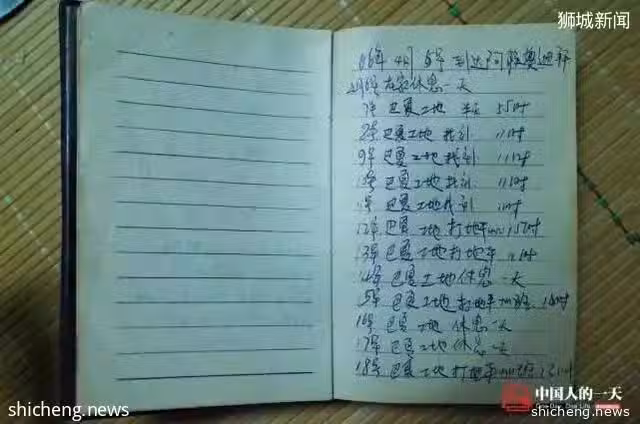 狮城新闻
06年 4月 5号 到达阿联酋迪拜
4月6号 在家休息一天
7号 巴夏工地 5小时
8号 巴夏工地 找剖 11小时
9号 巴夏工地 找剖 11小时
10号 巴夏工地 找剖 11小时
11号 巴夏工地 找剖 11小时
12号 巴夏工地 打地平 15小时
13号 巴夏工地 打地平 11小时
14号 巴夏工地 休息一天
15号 巴夏工地 打地平 加班
16号 巴夏工地 休息一天
17号 巴夏工地 休息一天
18号 巴夏工地 打地平 加班
中国人的一天
One Day, One Life
shicheng.news
shicheng.news